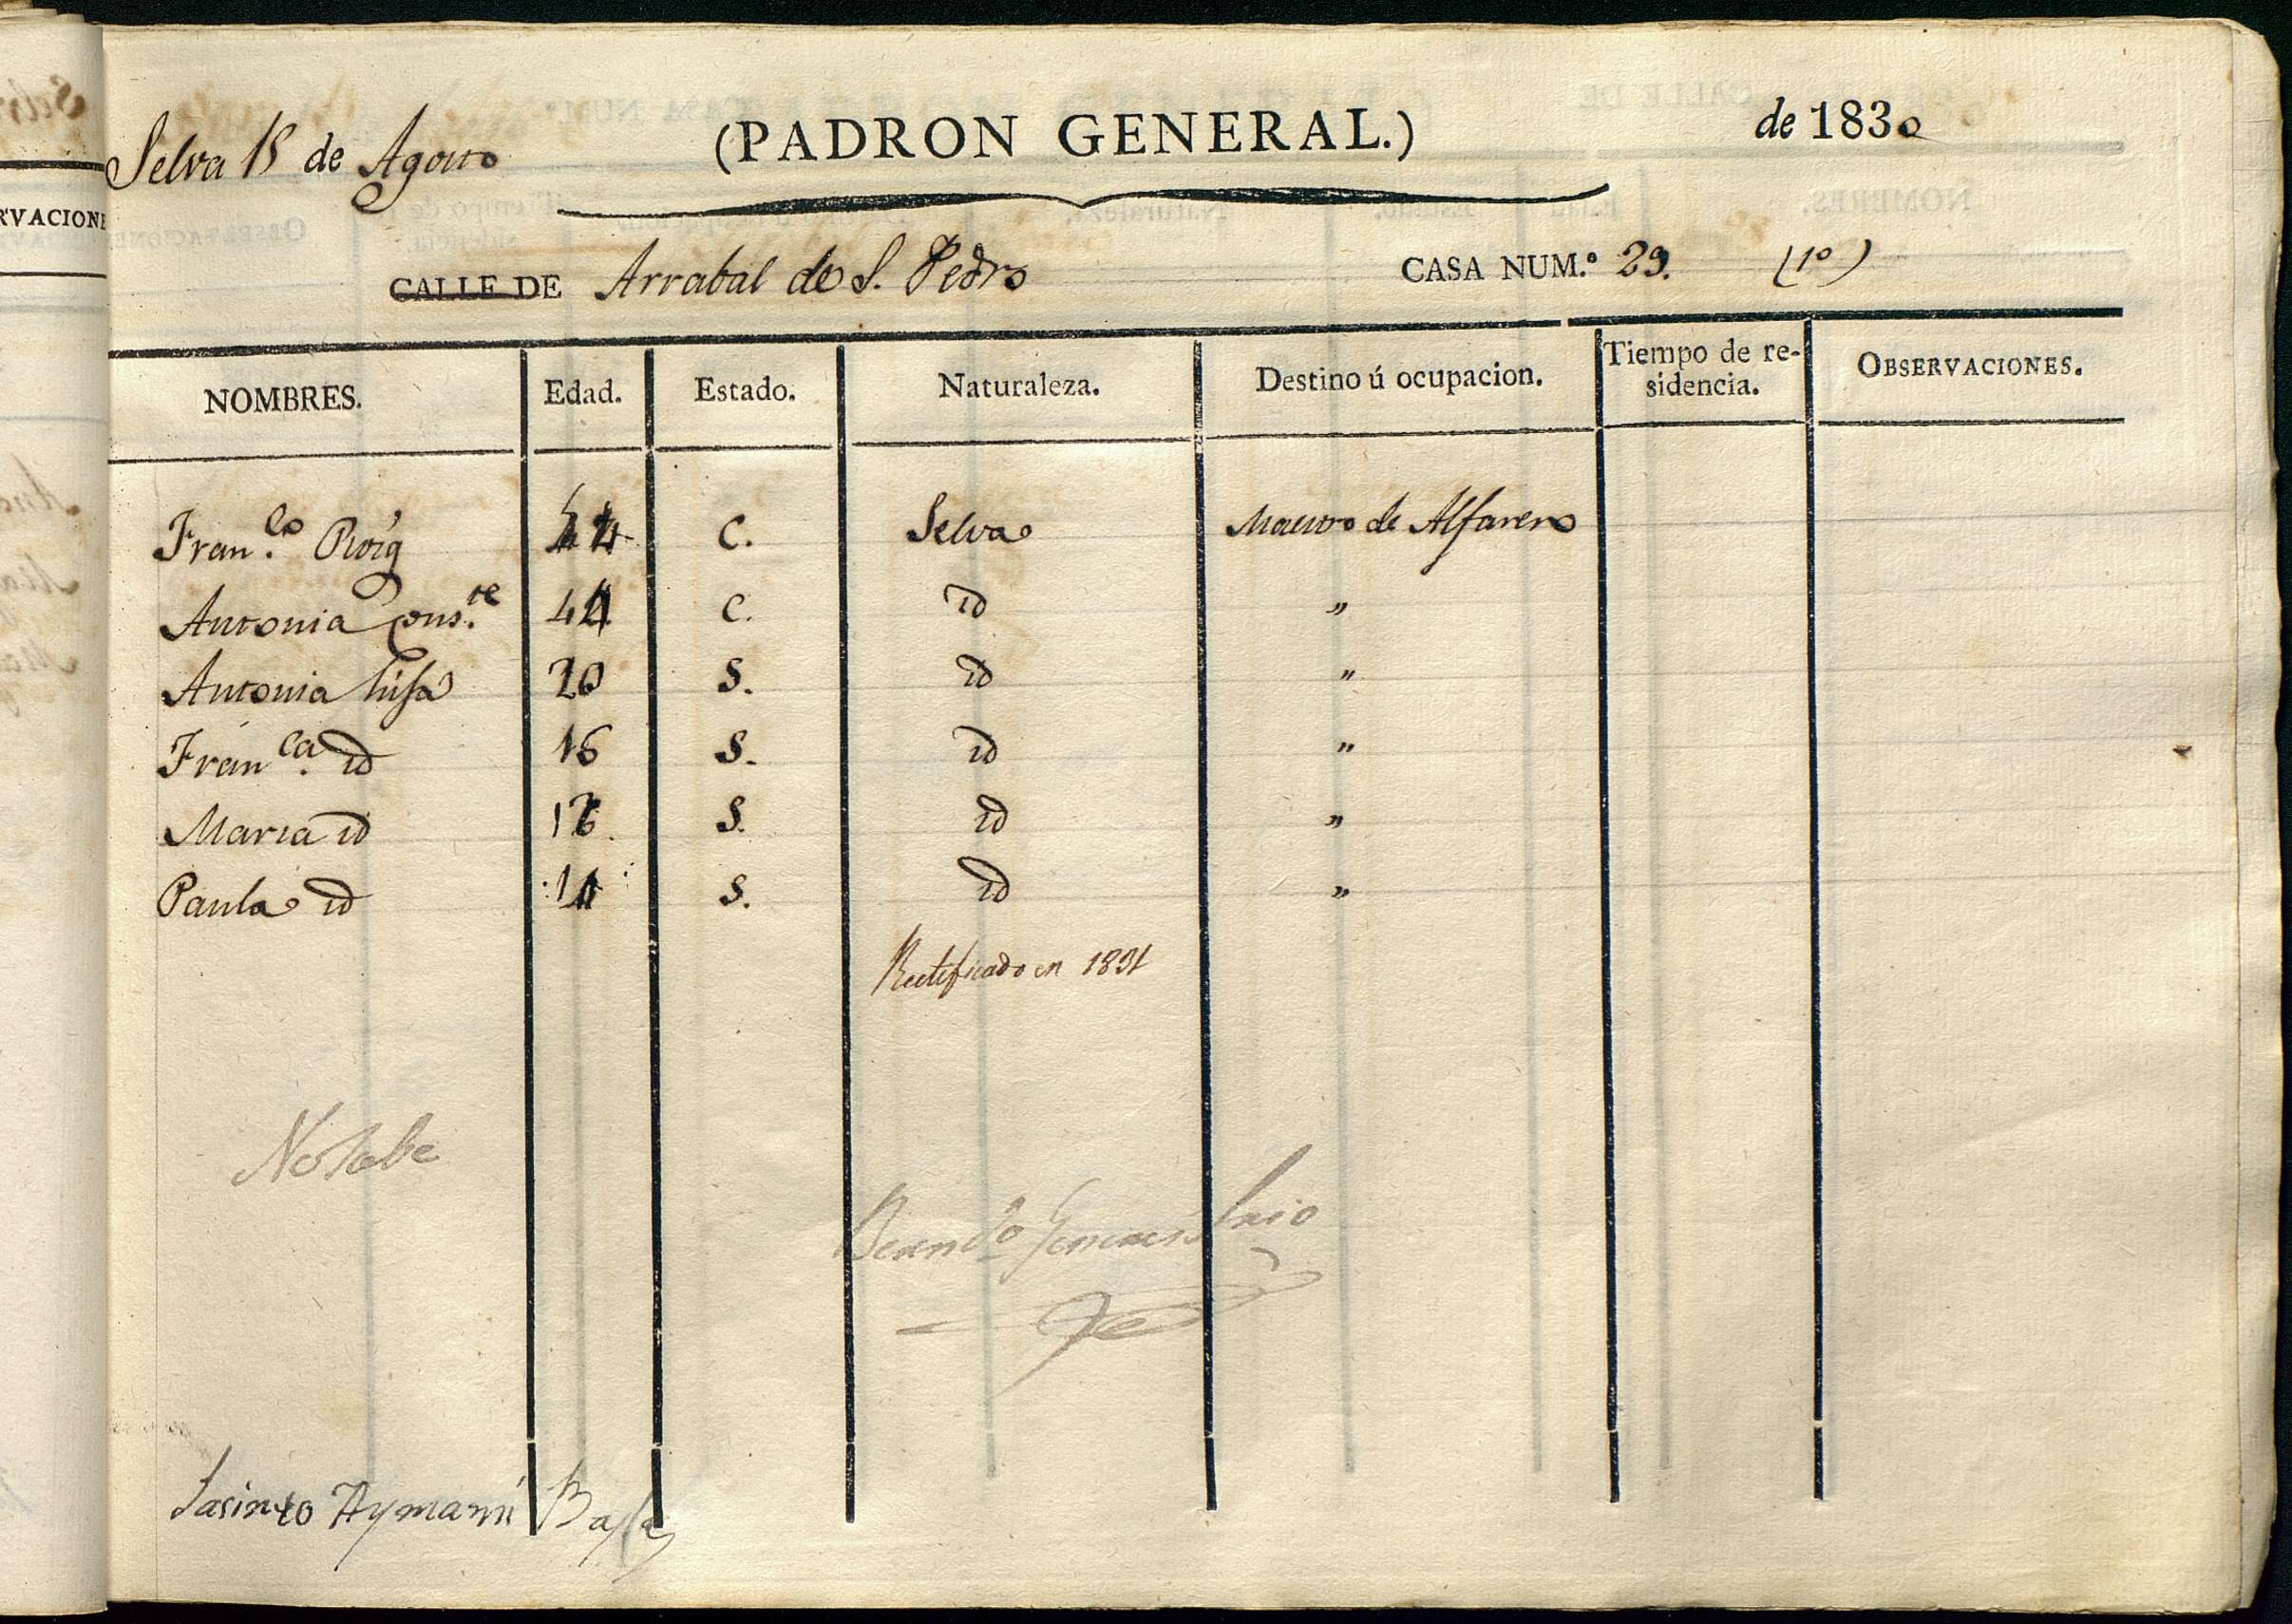 Selva 15 de Agosto (PADRON GENERAL.) de 1830
CALLE DE Arrabal de S. Pedro CASA NUM.º 29. (1º)
NOMBRES. Edad. Estado. Naturaleza. Destino ú ocupacion. Tiempo de residencia. OBSERVACIONES.
Fran.co Roig C. Selva Maestro de Alfarero
Antonia Cons.te C. id "
Antonia hija 20 S. id "
Fran.ca id 16 S. id "
Maria id S. id "
Paula id S. id "
Rectificado en 1831
No sabe
Jasinto Aymamí Bayle
RVACIONE